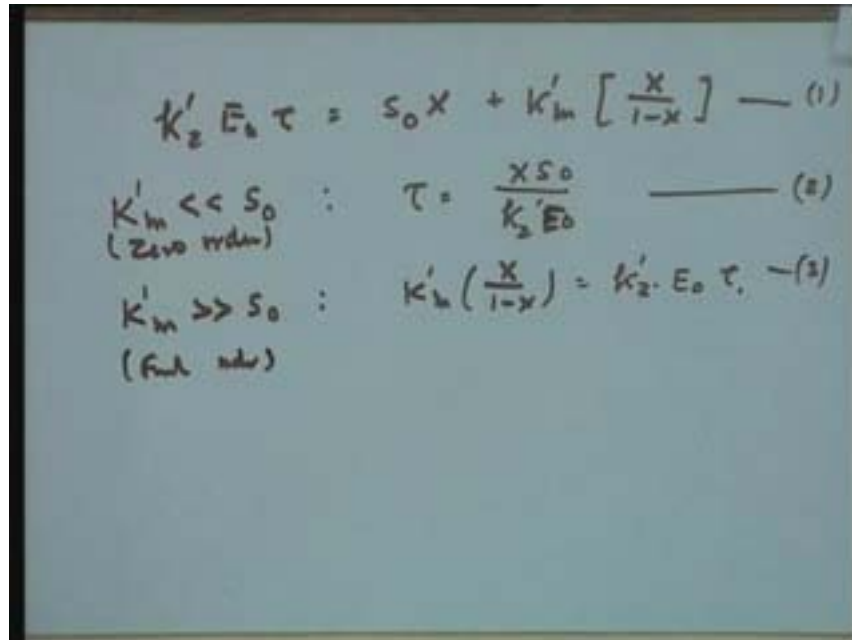 k'₂ E₀ τ = S₀ X + K'ₘ [ X / 1-X ] — (1)
K'ₘ << S₀ : τ = X S₀ / k₂' E₀ —— (2)
(Zero order)
K'ₘ >> S₀ : K'ₘ ( X / 1-X ) = k'₂ . E₀ τ. — (3)
(First order)